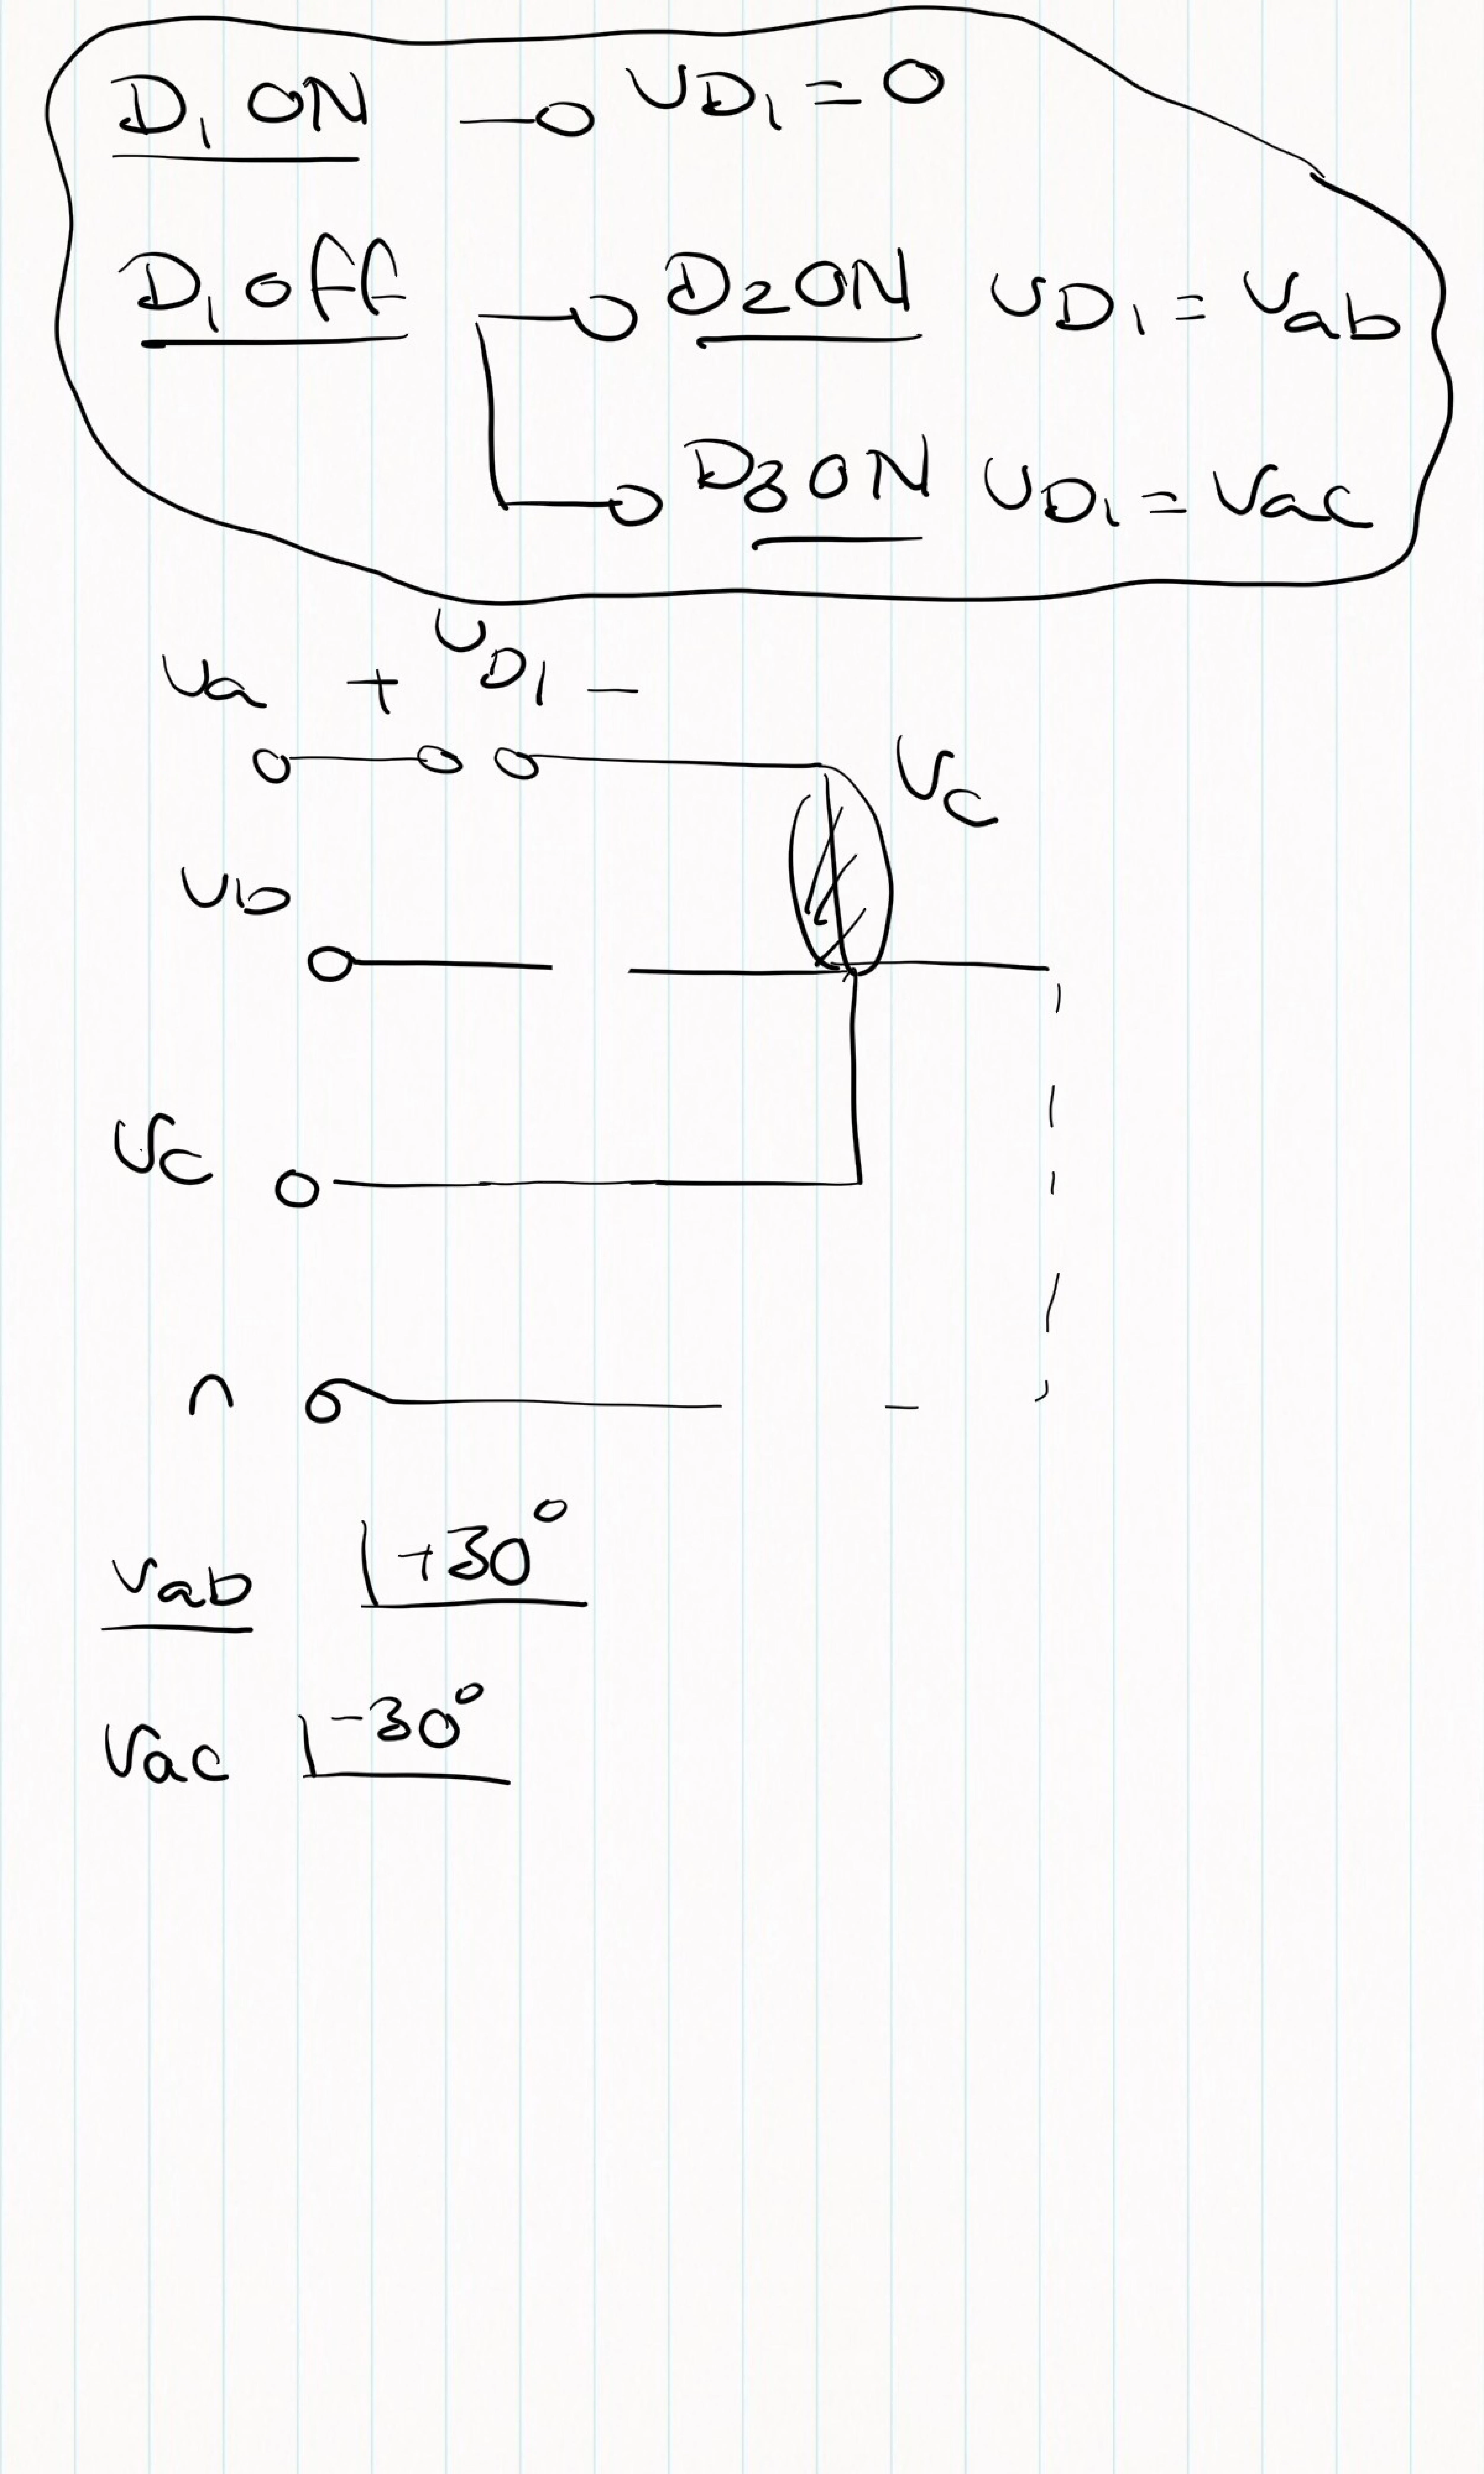 D1 ON —o VD1 = 0
D1 OFF —o D2 ON VD1 = Vab
—o D3 ON VD1 = Vac
Va + VD1 −
Vc
Vb
Vc
n
Vab ∠+30°
Vac ∠-30°